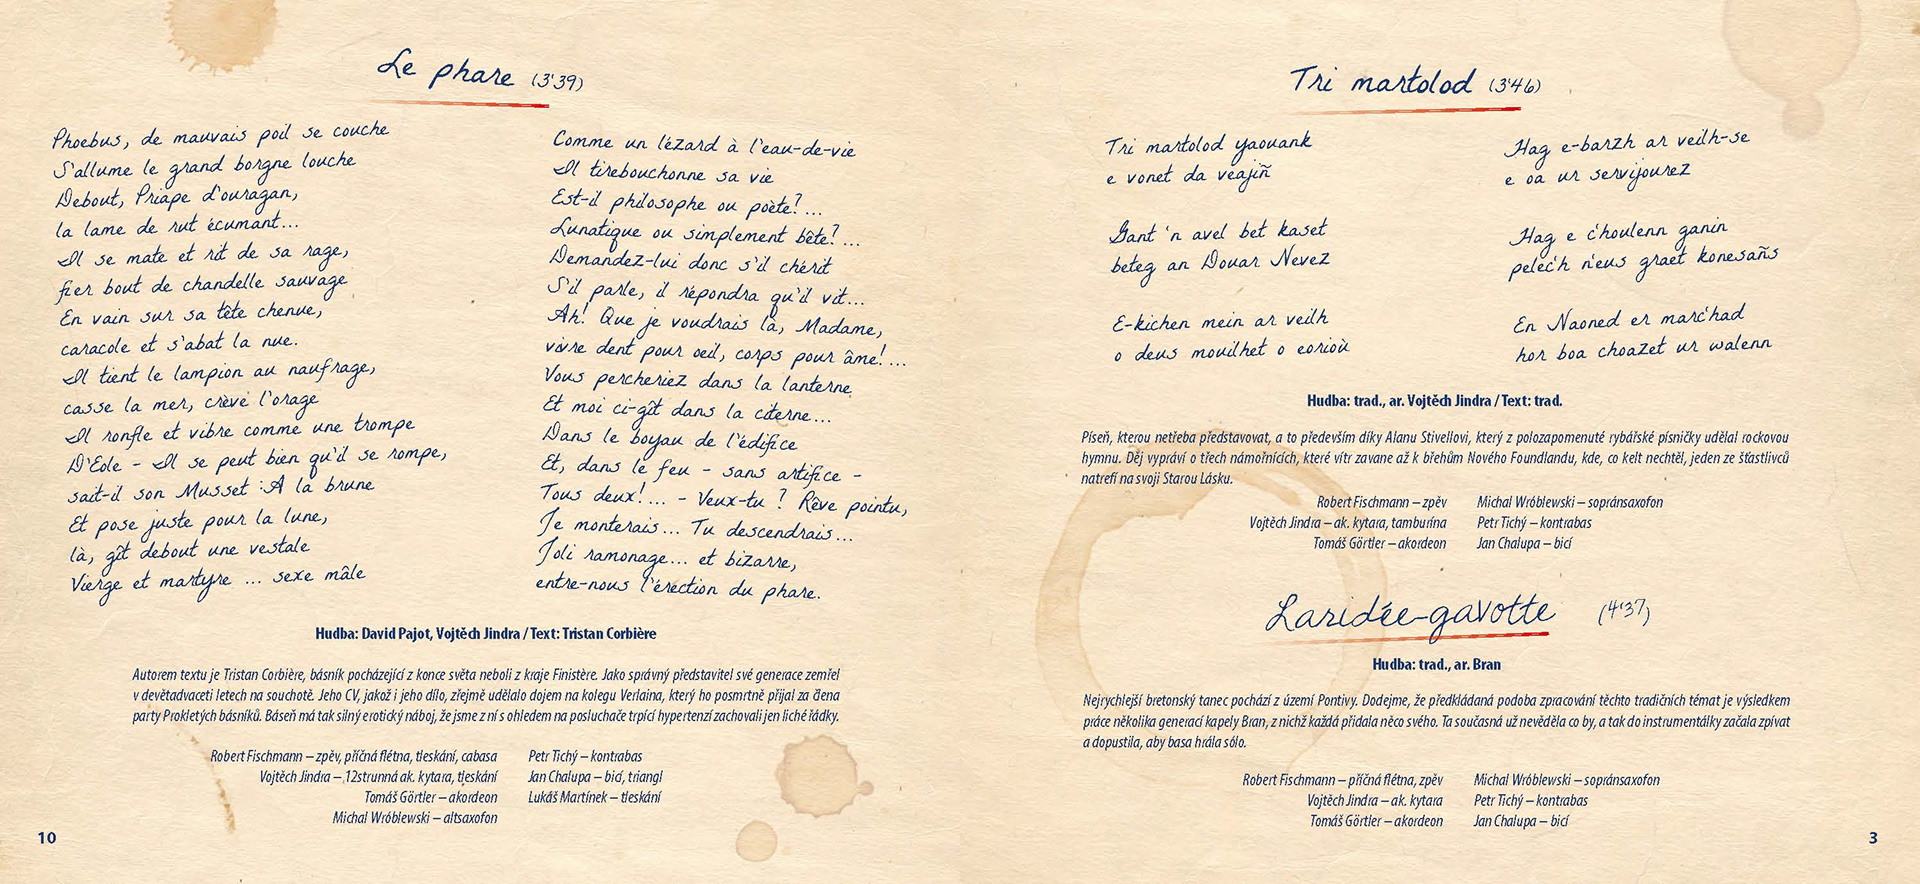 Le phare (3'39)
Phoebus, de mauvais poil se couche
S'allume le grand borgne louche
Debout, Priape d'ouragan,
la lame de rut écumant...
Il se mate et rit de sa rage,
fier bout de chandelle sauvage
En vain sur sa tête chenue,
caracole et s'abat la nue.
Il tient le lampion au naufrage,
casse la mer, crève l'orage
Il ronfle et vibre comme une trompe
D'Eole - Il se peut bien qu'il se rompe,
sait-il son Musset : A la brune
Et pose juste pour la lune,
là, gît debout une vestale
Vierge et martyre ... sexe mâle
Comme un lézard à l'eau-de-vie
Il tirebouchonne sa vie
Est-il philosophe ou poète?...
Lunatique ou simplement bête?...
Demandez-lui donc s'il chérit
S'il parle, il répondra qu'il vit...
Ah! Que je voudrais là, Madame,
vivre dent pour oeil, corps pour âme!...
Vous percheriez dans la lanterne
Et moi ci-gît dans la citerne...
Dans le boyau de l'édifice
Et, dans le feu - sans artifice -
Tous deux!... - Veux-tu ? Rêve pointu,
Je monterais... Tu descendrais...
Joli ramonage... et bizarre,
entre-nous l'érection du phare.
Hudba: David Pajot, Vojtěch Jindra / Text: Tristan Corbière
Autorem textu je Tristan Corbière, básník pocházející z konce světa neboli z kraje Finistère. Jako správný představitel své generace zemřel
v devětadvaceti letech na souchotě. Jeho CV, jakož i jeho dílo, zřejmě udělalo dojem na kolegu Verlaina, který ho posmrtně přijal za člena
party Prokletých básníků. Báseň má tak silný erotický náboj, že jsme z ní s ohledem na posluchače trpící hypertenzí zachovali jen liché řádky.
Robert Fischmann – zpěv, příčná flétna, tleskání, cabasa
Vojtěch Jindra – 12strunná ak. kytara, tleskání
Tomáš Görtler – akordeon
Michal Wróblewski – altsaxofon
Petr Tichý – kontrabas
Jan Chalupa – bicí, triangl
Lukáš Martínek – tleskání
10
Tri martolod (3'46)
Tri martolod yaouank
e vonet da veajiñ
Gant 'n avel bet kaset
beteg an Douar Nevez
E-kichen mein ar veilh
o deus mouilhet o eorioù
Hag e-barzh ar veilh-se
e oa ur servijourez
Hag e c'houlenn ganin
pelec'h n'eus graet konesañs
En Naoned er marc'had
hor boa choazet ur walenn
Hudba: trad., ar. Vojtěch Jindra / Text: trad.
Píseň, kterou netřeba představovat, a to především díky Alanu Stivellovi, který z polozapomenuté rybářské písničky udělal rockovou
hymnu. Děj vypráví o třech námořnících, které vítr zavane až k břehům Nového Foundlandu, kde, co kelt nechtěl, jeden ze šťastlivců
natrefí na svoji Starou Lásku.
Robert Fischmann – zpěv
Vojtěch Jindra – ak. kytara, tamburína
Tomáš Görtler – akordeon
Michal Wróblewski – sopránsaxofon
Petr Tichý – kontrabas
Jan Chalupa – bicí
Laridée-gavotte (4'37)
Hudba: trad., ar. Bran
Nejrychlejší bretonský tanec pochází z území Pontivy. Dodejme, že předkládaná podoba zpracování těchto tradičních témat je výsledkem
práce několika generací kapely Bran, z nichž každá přidala něco svého. Ta současná už nevěděla co by, a tak do instrumentálky začala zpívat
a dopustila, aby basa hrála sólo.
Robert Fischmann – příčná flétna, zpěv
Vojtěch Jindra – ak. kytara
Tomáš Görtler – akordeon
Michal Wróblewski – sopránsaxofon
Petr Tichý – kontrabas
Jan Chalupa – bicí
3